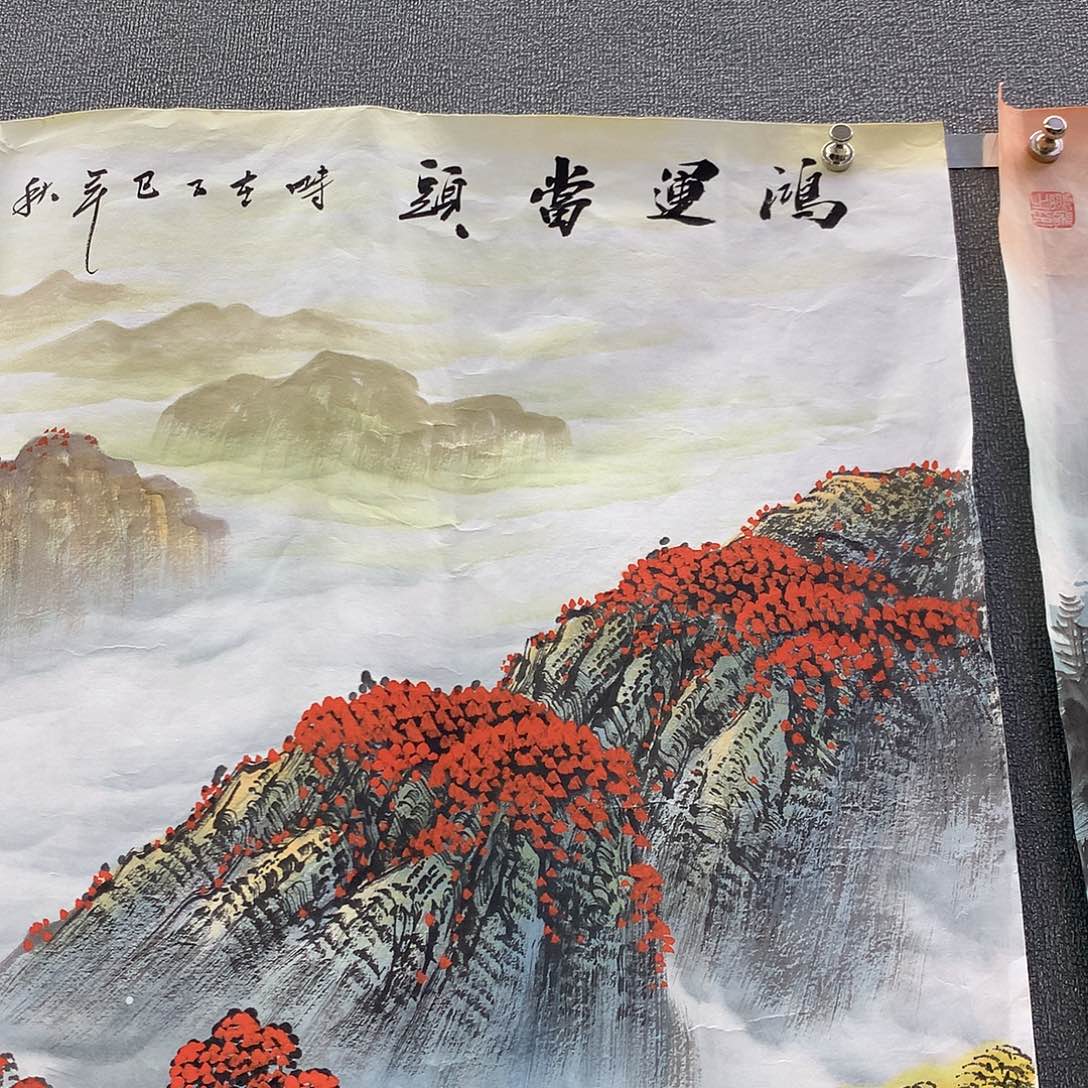 鴻運當頭 時在乙巳年秋